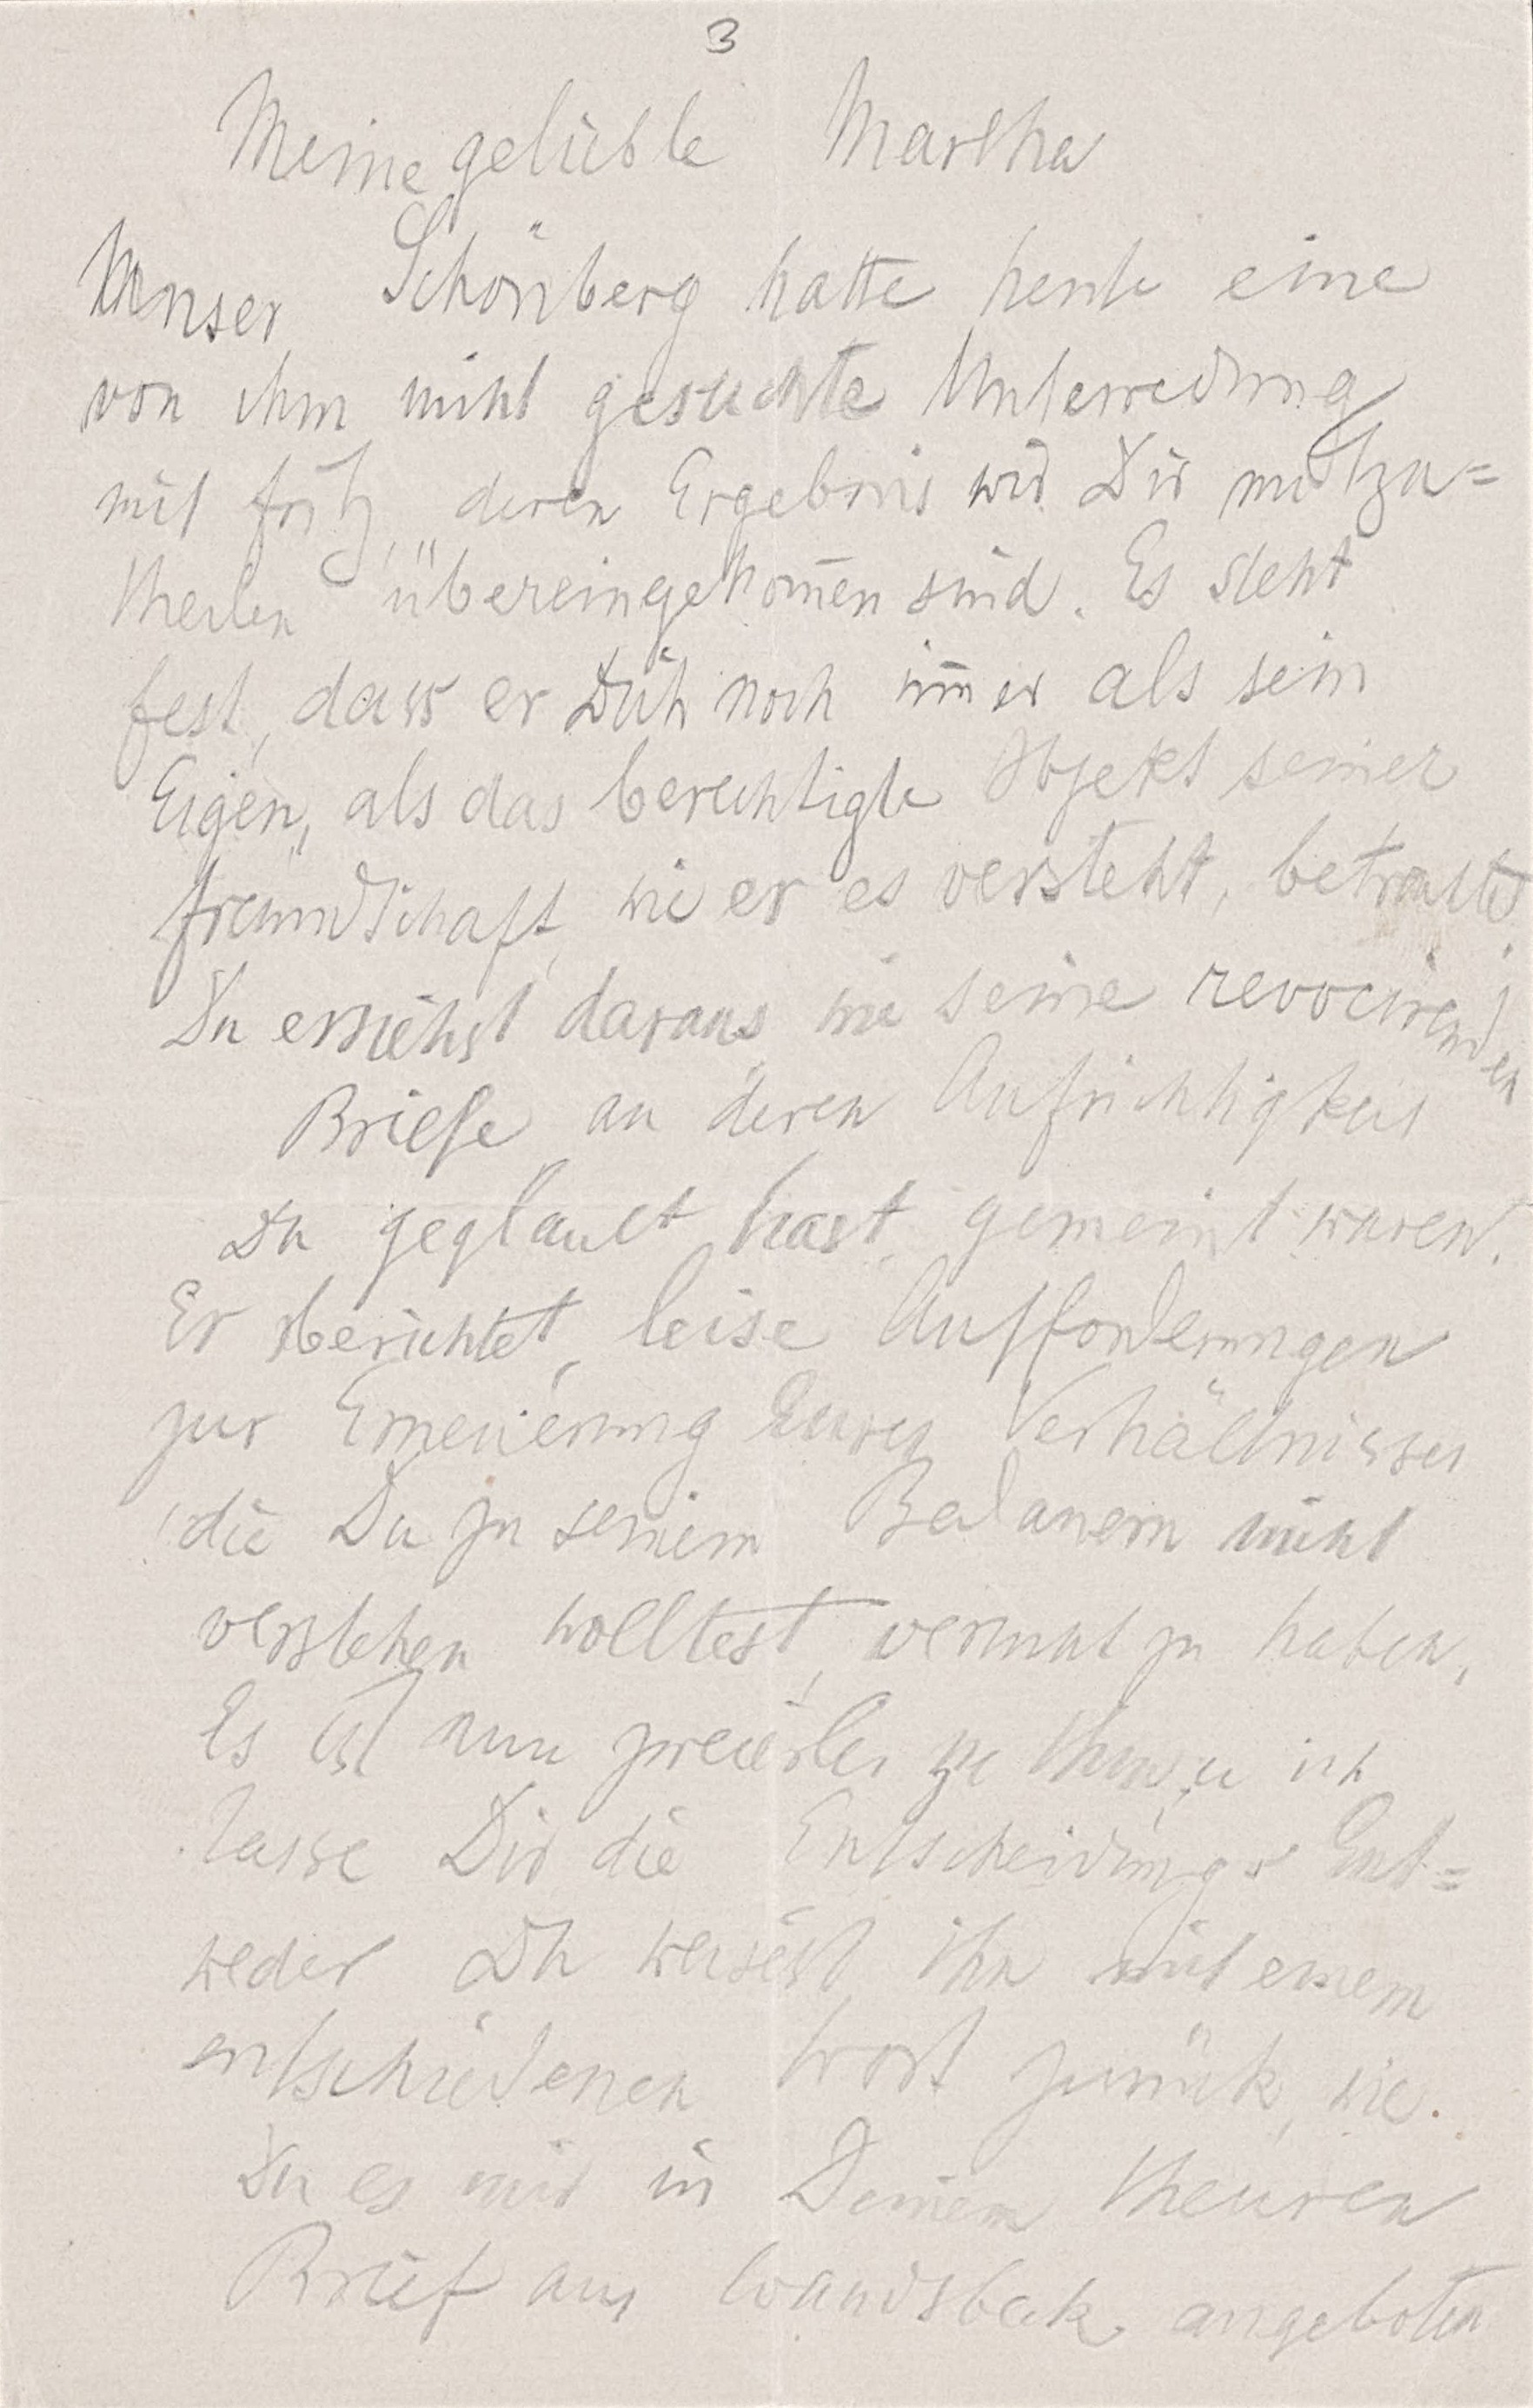 3
Meine geliebte Martha
Unser Schönberg hatte heute eine
von ihm nicht gesuchte Unterredung
mit Fritz, deren Ergebnis wir Dir mitzu=
theilen übereingekom̄en sind. Es steht
fest, dass er Dich noch im̄er als sein
Eigen, als das berechtigte Objekt seiner
Freundschaft, wie er es versteht, betrachtet.
Du ersiehst daraus, wie seine revocirenden
Briefe an deren Aufrichtigkeit
Du geglaubt hast, gemeint waren.
Er berichtet, leise Aufforderungen
zur Erneuerung Eures Verhältnisses
die Du zu seinem Bedauern nicht
verstehen wolltest, versucht zu haben.
Es ist nun zweierlei zu thun, u ich
lasse Dir die Entscheidung. Ent=
weder Du weisest ihn mit einem
entschiedenen Wort zurück, wie
Du es mir in Deinem theuren
Brief aus Wandsbek angeboten